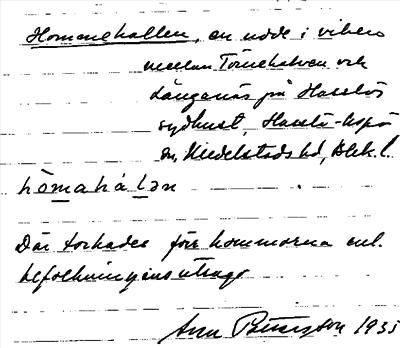 Hommehallen, en udde i viken
mellan Törnehalven och
Långanäs på Hasslös
sydkust, Hasslö-Aspö
sn, Medelstads hd, Blek. l.
hòmahálən
Där torkades förr hommorna enl.
befolkningens utsago
1935